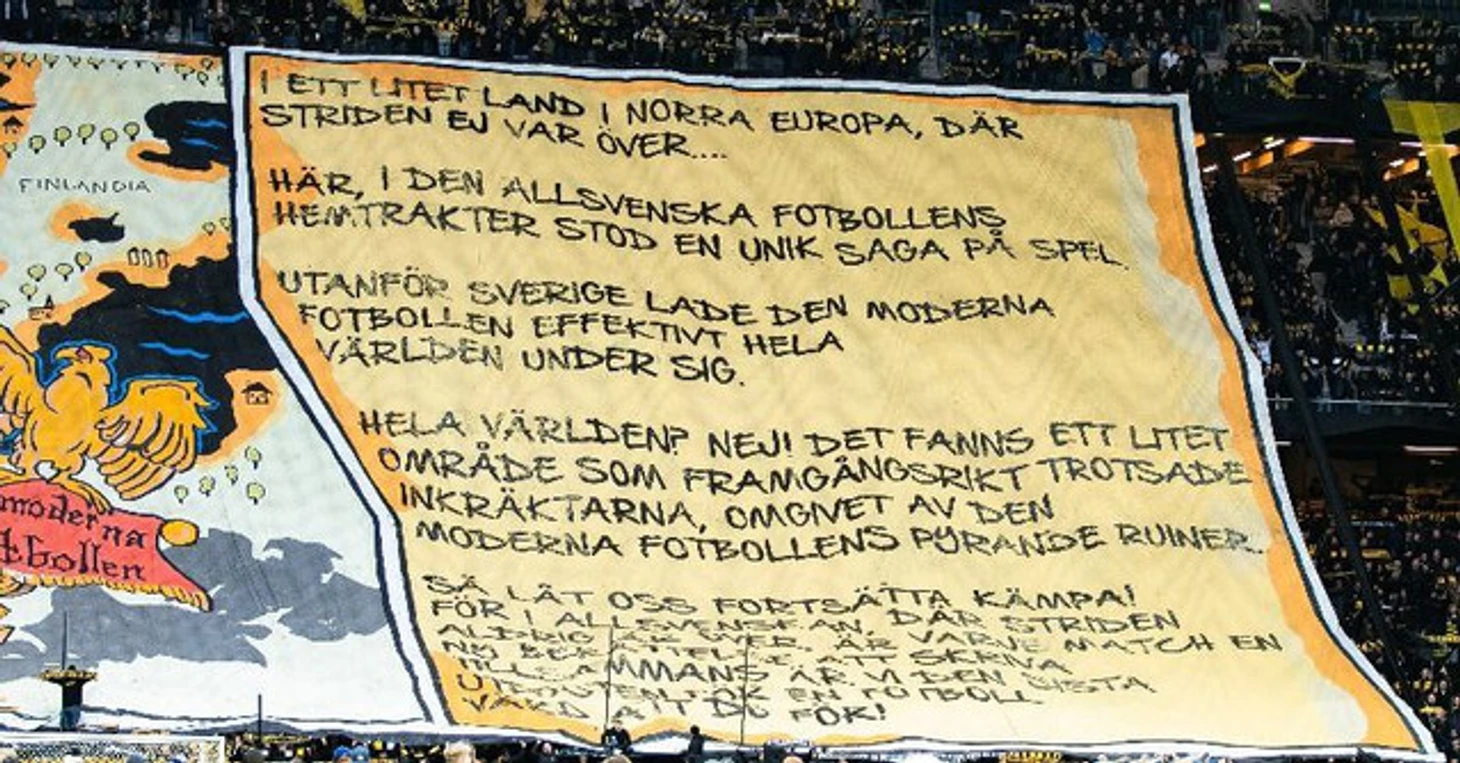 I ETT LITET LAND I NORRA EUROPA, DÄR
STRIDEN EJ VAR ÖVER....
HÄR, I DEN ALLSVENSKA FOTBOLLENS
HEMTRAKTER STOD EN UNIK SAGA PÅ SPEL.
UTANFÖR SVERIGE LADE DEN MODERNA
FOTBOLLEN EFFEKTIVT HELA
VÄRLDEN UNDER SIG.
HELA VÄRLDEN? NEJ! DET FANNS ETT LITET
OMRÅDE SOM FRAMGÅNGSRIKT TROTSADE
INKRÄKTARNA, OMGIVET AV DEN
MODERNA FOTBOLLENS PYRANDE RUINER.
SÅ LÅT OSS FORTSÄTTA KÄMPA!
FÖR I ALLSVENSKAN, DÄR STRIDEN
ALDRIG ÄR ÖVER, ÄR VARJE MATCH EN
NY BERÄTTELSE ATT SKRIVA
TILLSAMMANS ÄR VI DEN SISTA
UTPOSTEN FÖR EN FOTBOLL
VÄRD ATT DÖ FÖR!
FINLANDIA
moderna
tbollen